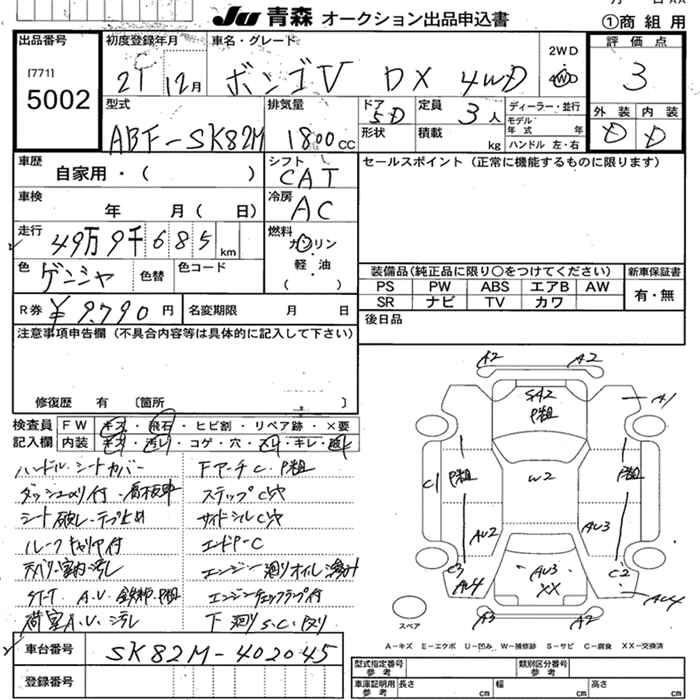 JU 青森 オークション出品申込書
①商組用
出品番号
[771]
5002
初度登録年月
21 12月
車名・グレード
ボンゴV DX 4WD
2WD
4WD
評価点
3
外装 内装
D D
型式
ABF-SK82M
排気量
1800 CC
ドア
5D
形状
定員
3人
積載
kg
ディーラー・並行
モデル年式 年
ハンドル 左・右
車歴
自家用・( )
シフト
CAT
セールスポイント (正常に機能するものに限ります)
車検
年 月( 日)
冷房
AC
走行
49万9千685 km
燃料
ガソリン
・
軽・油
( )
色
ゲンシャ
色替
色コード
装備品(純正品に限り〇をつけてください)
新車保証書
PS PW ABS エアB AW
SR ナビ TV カワ
有・無
R券
¥9,790円
名変期限 月 日
後日品
注意事項申告欄 (不具合内容等は具体的に記入して下さい)
修復歴 有 〔箇所 〕
検査員記入欄
FW キズ・飛石・ヒビ割・リペア跡・×要
内装 キズ・汚レ・コゲ・穴・スレ・キレ・
ハンドル・シートカバー
ダッシュメリ付・看板車
シート破レ・テープ止め
ルーフキャリヤ付
荷室A.U.汚レ
FアーチC・P粗
ステップC穴
サイドシルC穴
エンドP-C
エンジン廻りオイル
エンジンチェックランプ付
下廻りS.C.
車台番号
SK82M-402045
登録番号
A2 A2
SA2
P粗
A1
C1 P粗
W2
P粗
AU2
AU3
C3
AU4
AU3
XX
C2
AU4
A3
A2
スペア
A-キズ E-エクボ U-凹み W-補修跡 S-サビ C-腐食 XX-交換済
型式指定番号
類別区分番号
車庫証明用参考
長さ cm
幅 cm
高さ cm